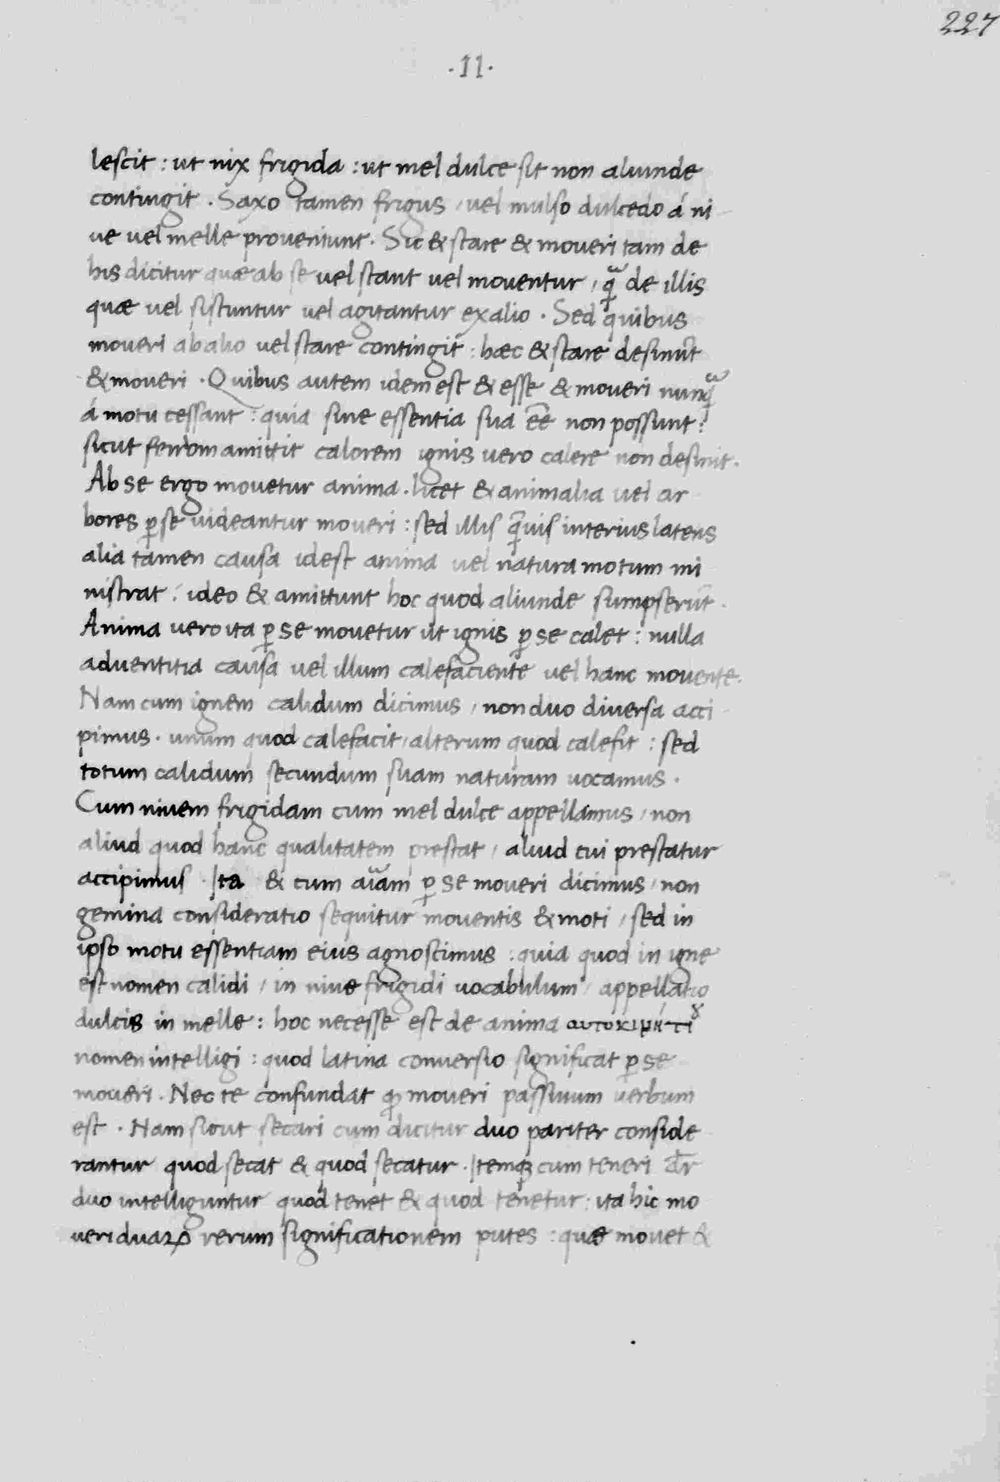 227
·11·
lescit : ut nix frigida : ut mel dulce sit non aliunde
contingit . Saxo tamen frigus / vel mulso dulcedo á ni
ve vel melle proveniunt . Sic & stare & moveri tam de
his dicitur quæ ab se vel stant vel moventur / qᷓ de illis
quæ vel sistuntur vel agitantur ex alio . Sed quibus
moveri ab alio vel stare contingit : hæc & stare desinūt
& moveri . Quibus autem idem est & esse & moveri nunqᷓ
á motu cessant : quia sine essentia sua eē non possunt :
sicut ferrum amittit calorem ignis vero calere non desinit .
Ab se ergo movetur anima . licet & animalia vel ar
bores ꝑ se videantur moveri : sed illis qᷓuis interius latens
alia tamen causa idest anima vel natura motum mi
nistrat : ideo & amittunt hoc quod aliunde sumpserūt .
Anima vero ita ꝑ se movetur ut ignis ꝑ se calet : nulla
adventitia causa vel illum calefaciente vel hanc movente .
Nam cum ignem calidum dicimus / non duo diversa acci
pimus . unum quod calefacit / alterum quod calefit : sed
totum calidum secundum suam naturam vocamus .
Cum nivem frigidam cum mel dulce appellamus / non
aliud quod hanc qualitatem prestat / aliud cui prestatur
accipimus . Ita & cum aīam ꝑ se moveri dicimus / non
gemina consideratio sequitur moventis & moti / sed in
ipso motu essentiam eius agnoscimus : quia quod in igne
est nomen calidi / in nive frigidi vocabulum / appellatio
dulcis in melle : hoc necesse est de anima αυτοκινήτȣ
nomen intelligi : quod latina conversio significat ꝑ se
moveri . Nec te confundat ꝙ moveri passivum verbum
est . Nam sicut secari cum dicitur duo pariter conside
rantur quod secat & quod secatur . Itemqꝫ cum teneri dr̄
duo intelliguntur quod tenet & quod tenetur : ita hic mo
veri duaꝝ rerum significationem putes : quæ movet &